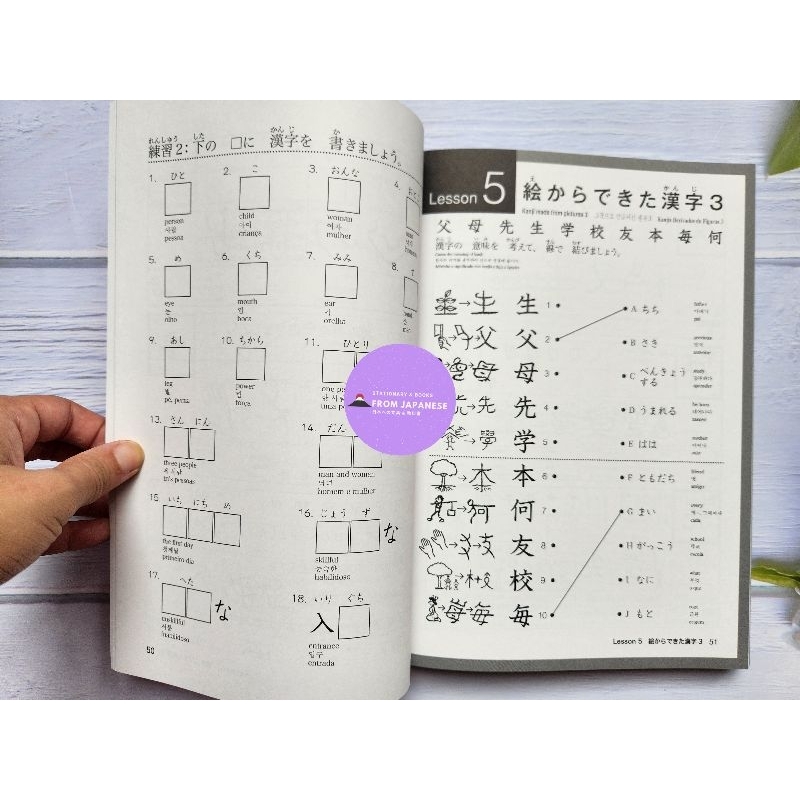 れんしゅう した かんじ か
練習2:下の □に 漢字を 書きましょう。
1. ひと
person
사람
pessoa
2. こ
child
아이
criança
3. おんな
woman
여자
mulher
4.
5. め
eye
눈
olho
6. くち
mouth
입
boca
7. みみ
ear
귀
orelha
8. て
9. あし
leg
발
pé, perna
10. ちから
power
힘
força
11. ひとり
13. さん にん
three people
세 사람
três pessoas
14. だん
man and woman
남녀
homem e mulher
15. いち にち め
the first day
첫째날
primeiro dia
16. じょう ず
な
skillful
능숙한
habilidoso
17. へた
な
unskillful
서툰
18. いり ぐち
入
entrance
입구
entrada
50
STATIONARY & BOOKS
FROM JAPANESE
Lesson 5 絵からできた漢字 3
え かんじ
Kanji made from pictures 3
Kanjis Derivados de Figuras 3
父 母 先 生 学 校 友 本 毎 何
漢字の 意味を 考えて、線で 結びましょう。
生 → 生 1
A ちち
father
父 → 父 2
B さき
母 → 母 3
C べんきょうする
study
先 → 先 4
D うまれる
be born
學 → 学 5
E はは
mother
本 → 本 6
F ともだち
friend
何 → 何 7
G まい
every
友 → 友 8
H がっこう
school
校 → 校 9
I なに
what
毎 → 毎 10
J もと
Lesson 5 絵からできた漢字 3 51